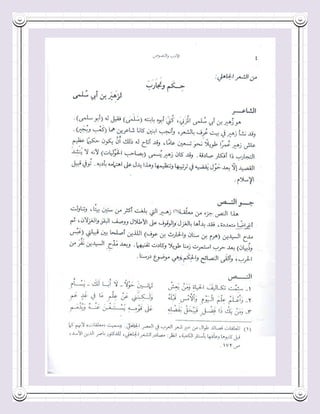 ٤
الأدب والنصوص
من الشعر الجاهلي:
حكم وتجارب
لزهير بن أبي سلمى
الشاعر
هو زهير بن أبي سلمى المزني، كُنِّيَ أبوه بابنته (سلمى) فقيل له (أبو سلمى).
وقد نشأ زهير في بيت عُرف بالشعر، وأنجب ابنين كانا شاعرين هما (كعب وبُجير).
عاش زهير عمرًا طويلًا نحو تسعين عامًا، وقد أتاح له ذلك أن يكون حكيمًا عظيم
التجارب ذا أفكار صادقة. وقد كان زهير يُسمى (بصاحب الحوليات) لأنه لا يُنشد
القصيد إلا بعد حول يقضيه في ترتيبها وتنظيمها وهذا يدل على اهتمامه بأدبه. توفي قبيل
الإسلام.
جو النص
هذا النص جزء من معلقة(١) زهير التي بلغت أكثر من ستين بيتًا، وتناولت
أغراضًا متعددة، فقد بدأها بالغزل والوقوف على الأطلال ووصف البقر والغزلان، ثم
مدح السيدين (هرم بن سنان والحارث بن عوف) اللذين أصلحا بين قبيلتي (عبس
وذبيان) بعد حرب استمرت زمنًا طويلًا وكادت تفنيهما. وبعد مدح السيدين نفّر من
الحرب، وألقى النصائح والحكم وهي موضوع درسنا.
النص
١- سئمت تكاليف الحياة ومن يعش ثمانين حولًا - لا أبا لك - يسأم
٢- وأعلم علم اليوم والأمس قبله ولكنني عن علم ما في غد عم
٣- ومن يك ذا فضل فيبخل بفضله على قومه يستغن عنه ويذمم
(١) المعلقات قصائد طوال من خير شعر العرب في العصر الجاهلي.
ص ١٧٢.